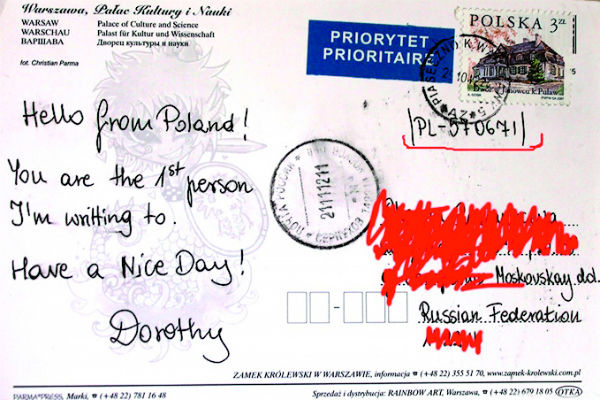 Warszawa, Pałac Kultury i Nauki
WARSAW Palace of Culture and Science
WARSCHAU Palast für Kultur und Wissenschaft
ВАРШАВА Дворец культуры и наук
fot. Christian Parma
PRIORYTET
PRIORITAIRE
POLSKA 3 ZŁ
PIASECZNO K.W.
PL-570671
Hello from Poland!
You are the 1st person
I'm writting to.
Have a Nice Day!
Dorothy
ПОЧТА РОССИИ
21111211
Moskovskay
Russian Federation
ZAMEK KRÓLEWSKI W WARSZAWIE, informacja (+48 22) 355 51 70, www.zamek-krolewski.com.pl
PARMA PRESS, Marki, (+48 22) 781 16 48
Sprzedaż i dystrybucja: RAINBOW ART, Warszawa, (+48 22) 679 18 05 OTKA